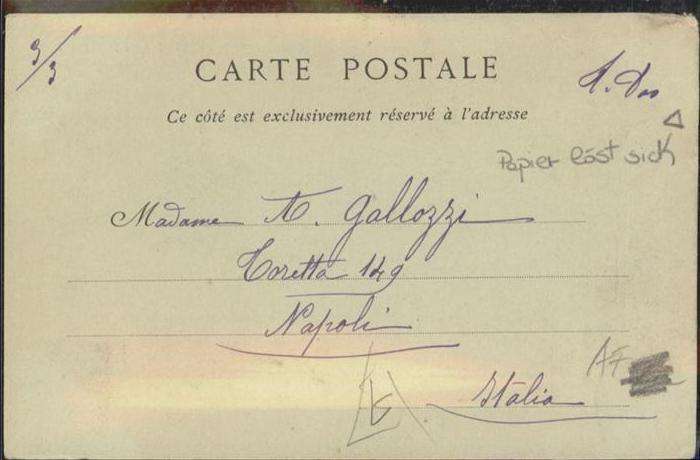 3/3
CARTE POSTALE
Ce côté est exclusivement réservé à l'adresse
Papier löst sich
Madame A. Gallozzi
Toretta 149
Napoli
AF
Italia